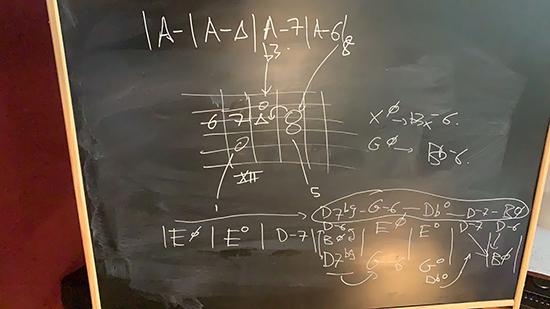 |A-|A-Δ|A-7|A-6|
b3. 8
6 7 Δ 8
XII
1 5
Xø → b3x-6.
Gø → Bb-6.
D7b9-G-6-Db°-D-7-Bø
|Eø|E°|D-7|D-6|Eø|E°|D-7 D-6
D7b9 G-6 G° Bø|
Db°